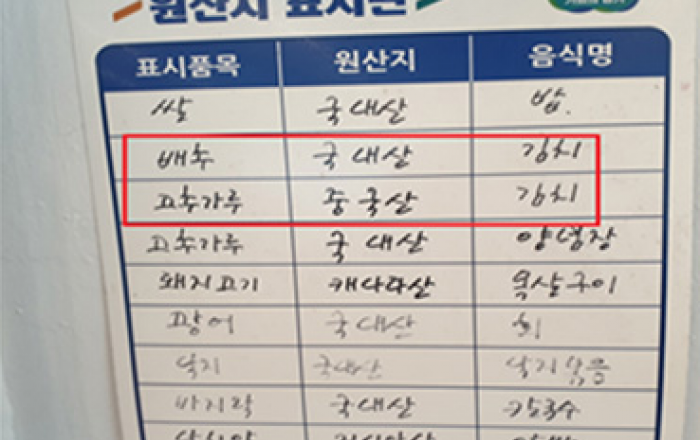 원산지 표시판
표시품목 원산지 음식명
쌀 국내산 밥.
배추 국내산 김치
고추가루 중국산 김치
고추가루 국내산 양념장
돼지고기 캐나다산 목살구이
광어 국내산 회
낙지 국내산 낙지볶음
바지락 국내산 칼국수